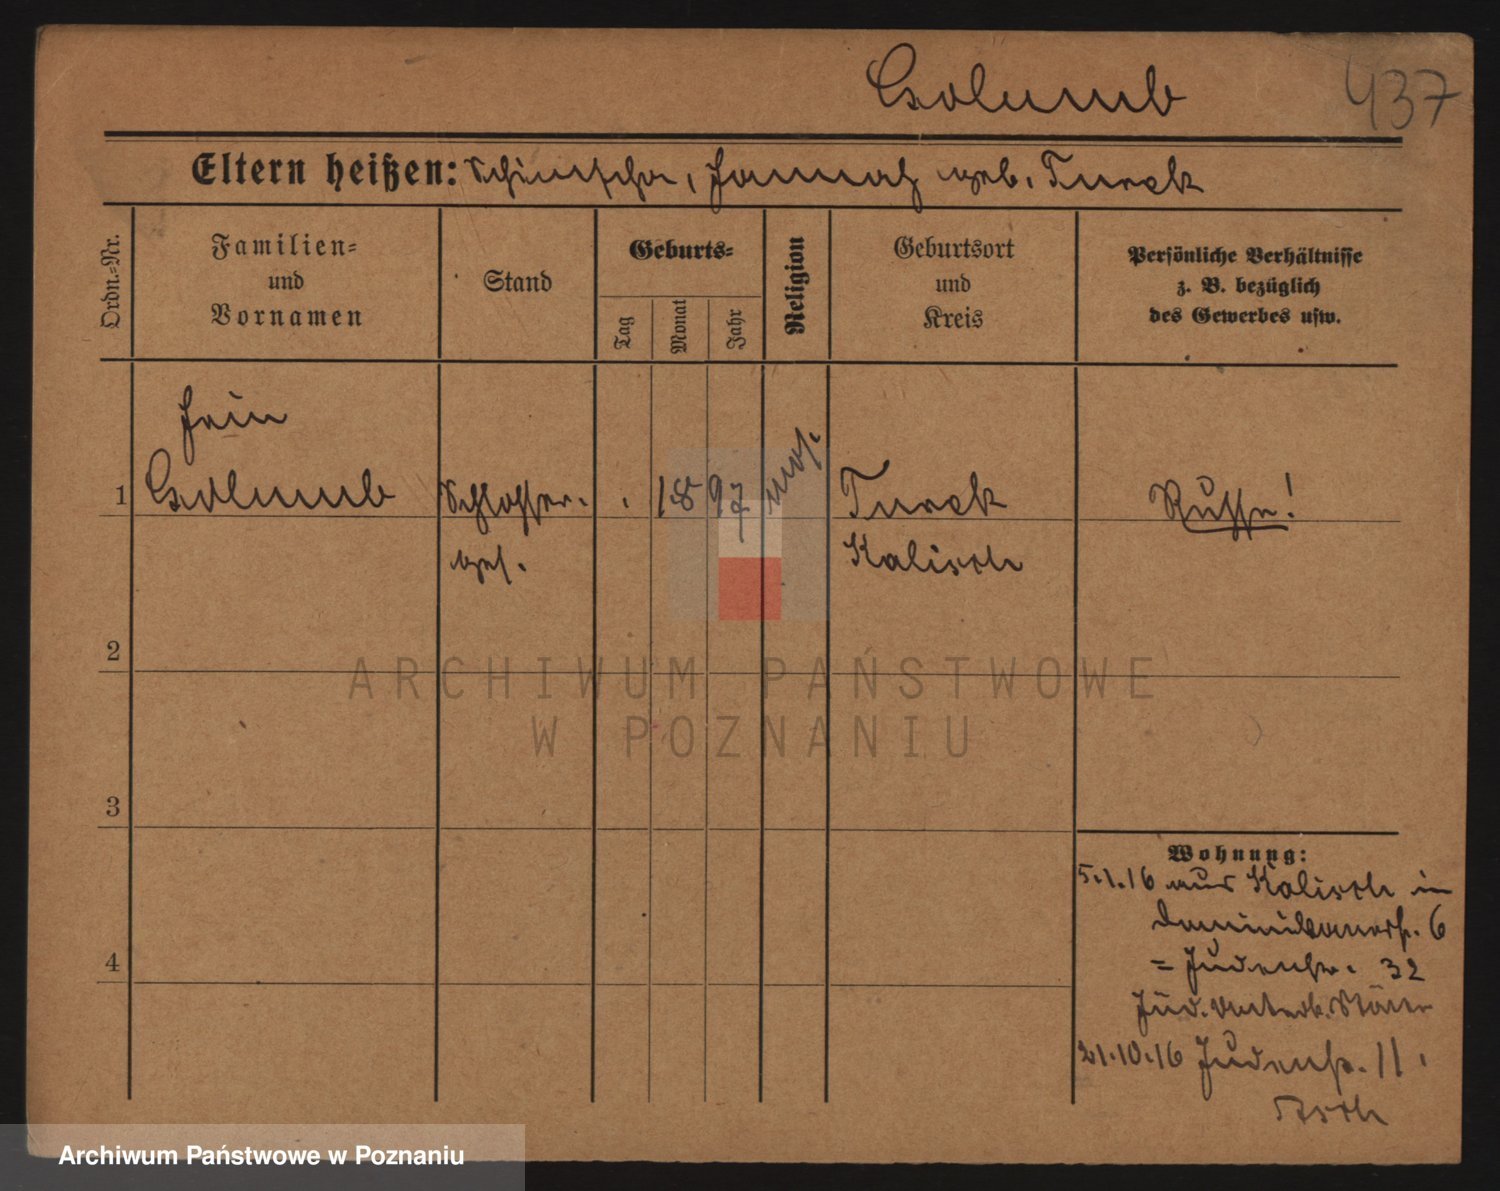 Golumb 437
Eltern heißen: geb. Turek
Ordn.-Nr.
Familien-
und
Vornamen
Stand
Geburts-
Tag
Monat
Jahr
Religion
Geburtsort
und
Kreis
Persönliche Verhältnisse
z. B. bezüglich
des Gewerbes usw.
1 Golumb Schlosser- 1897 mos. Turek Russe!
ges. Kalisch
2
3
4
Wohnung:
5.1.16 aus Kalisch in
Dominikanerstr. 6
= Judenstr. 32
Jüd.
21.10.16 Judenstr. 11.
ARCHIWUM PAŃSTWOWE
W POZNANIU
Archiwum Państwowe w Poznaniu